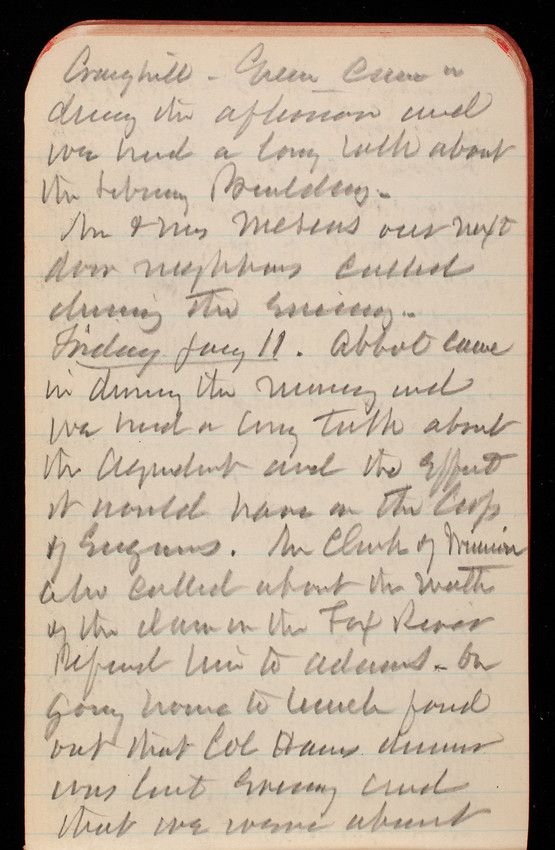 Craighill - Green came in
during the afternoon and
we had a long talk about
the Library Building.
Mr & Mrs our next
door neighbors called
during the evening.
Friday Jany 11. Abbot came
in during the morning and
we had a long talk about
the and the effect
it would have on the Corps
of Engineers. Mr Clark of
also called about the
of the dam on the Fox River
Referred him to Adams. On
going home to lunch found
out that Col dinner
was last evening and
that we were absent